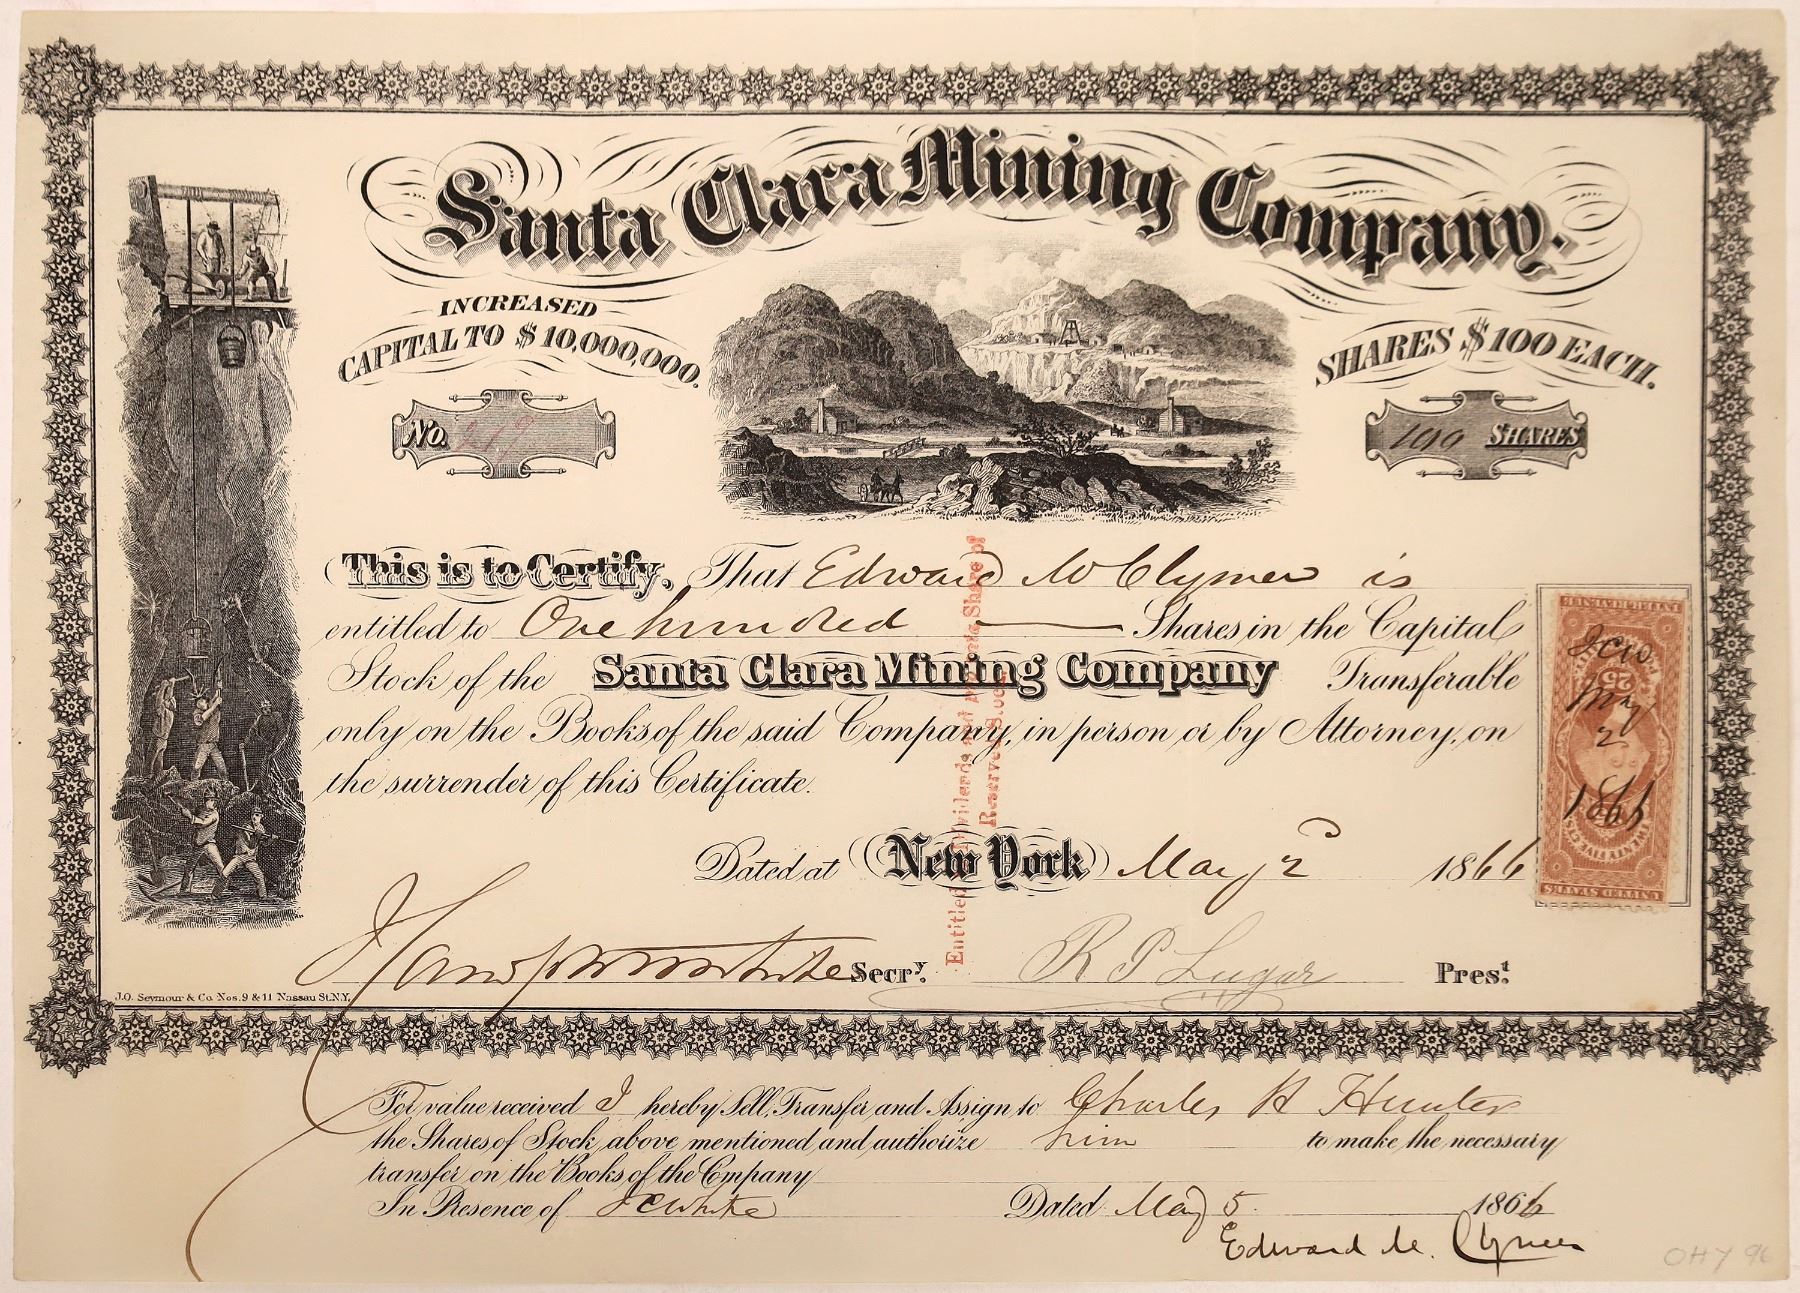 Santa Clara Mining Company.
INCREASED
CAPITAL TO $10,000,000.
SHARES $100 EACH.
No. 279
100 SHARES
This is to Certify, That Edward M Clymer is
entitled to One hundred Shares in the Capital
Stock of the Santa Clara Mining Company Transferable
only on the Books of the said Company, in person or by Attorney, on
the surrender of this Certificate.
Dated at New York May 2 1866
Secry.
R P Lugar Prest.
J.O. Seymour & Co. Nos. 9 & 11 Nassau St. N.Y.
Entitled Dividends and Share of
Reserve
INTER. REVENUE
25
TWENTY FIVE CTS.
UNITED STATES
JCW
May
2
1866
For value received I hereby Sell, Transfer and Assign to Charles H Hunter
the Shares of Stock above mentioned and authorize him to make the necessary
transfer on the Books of the Company
In Presence of J C White Dated May 5 1866
Edward M. Clymer
OHY 96